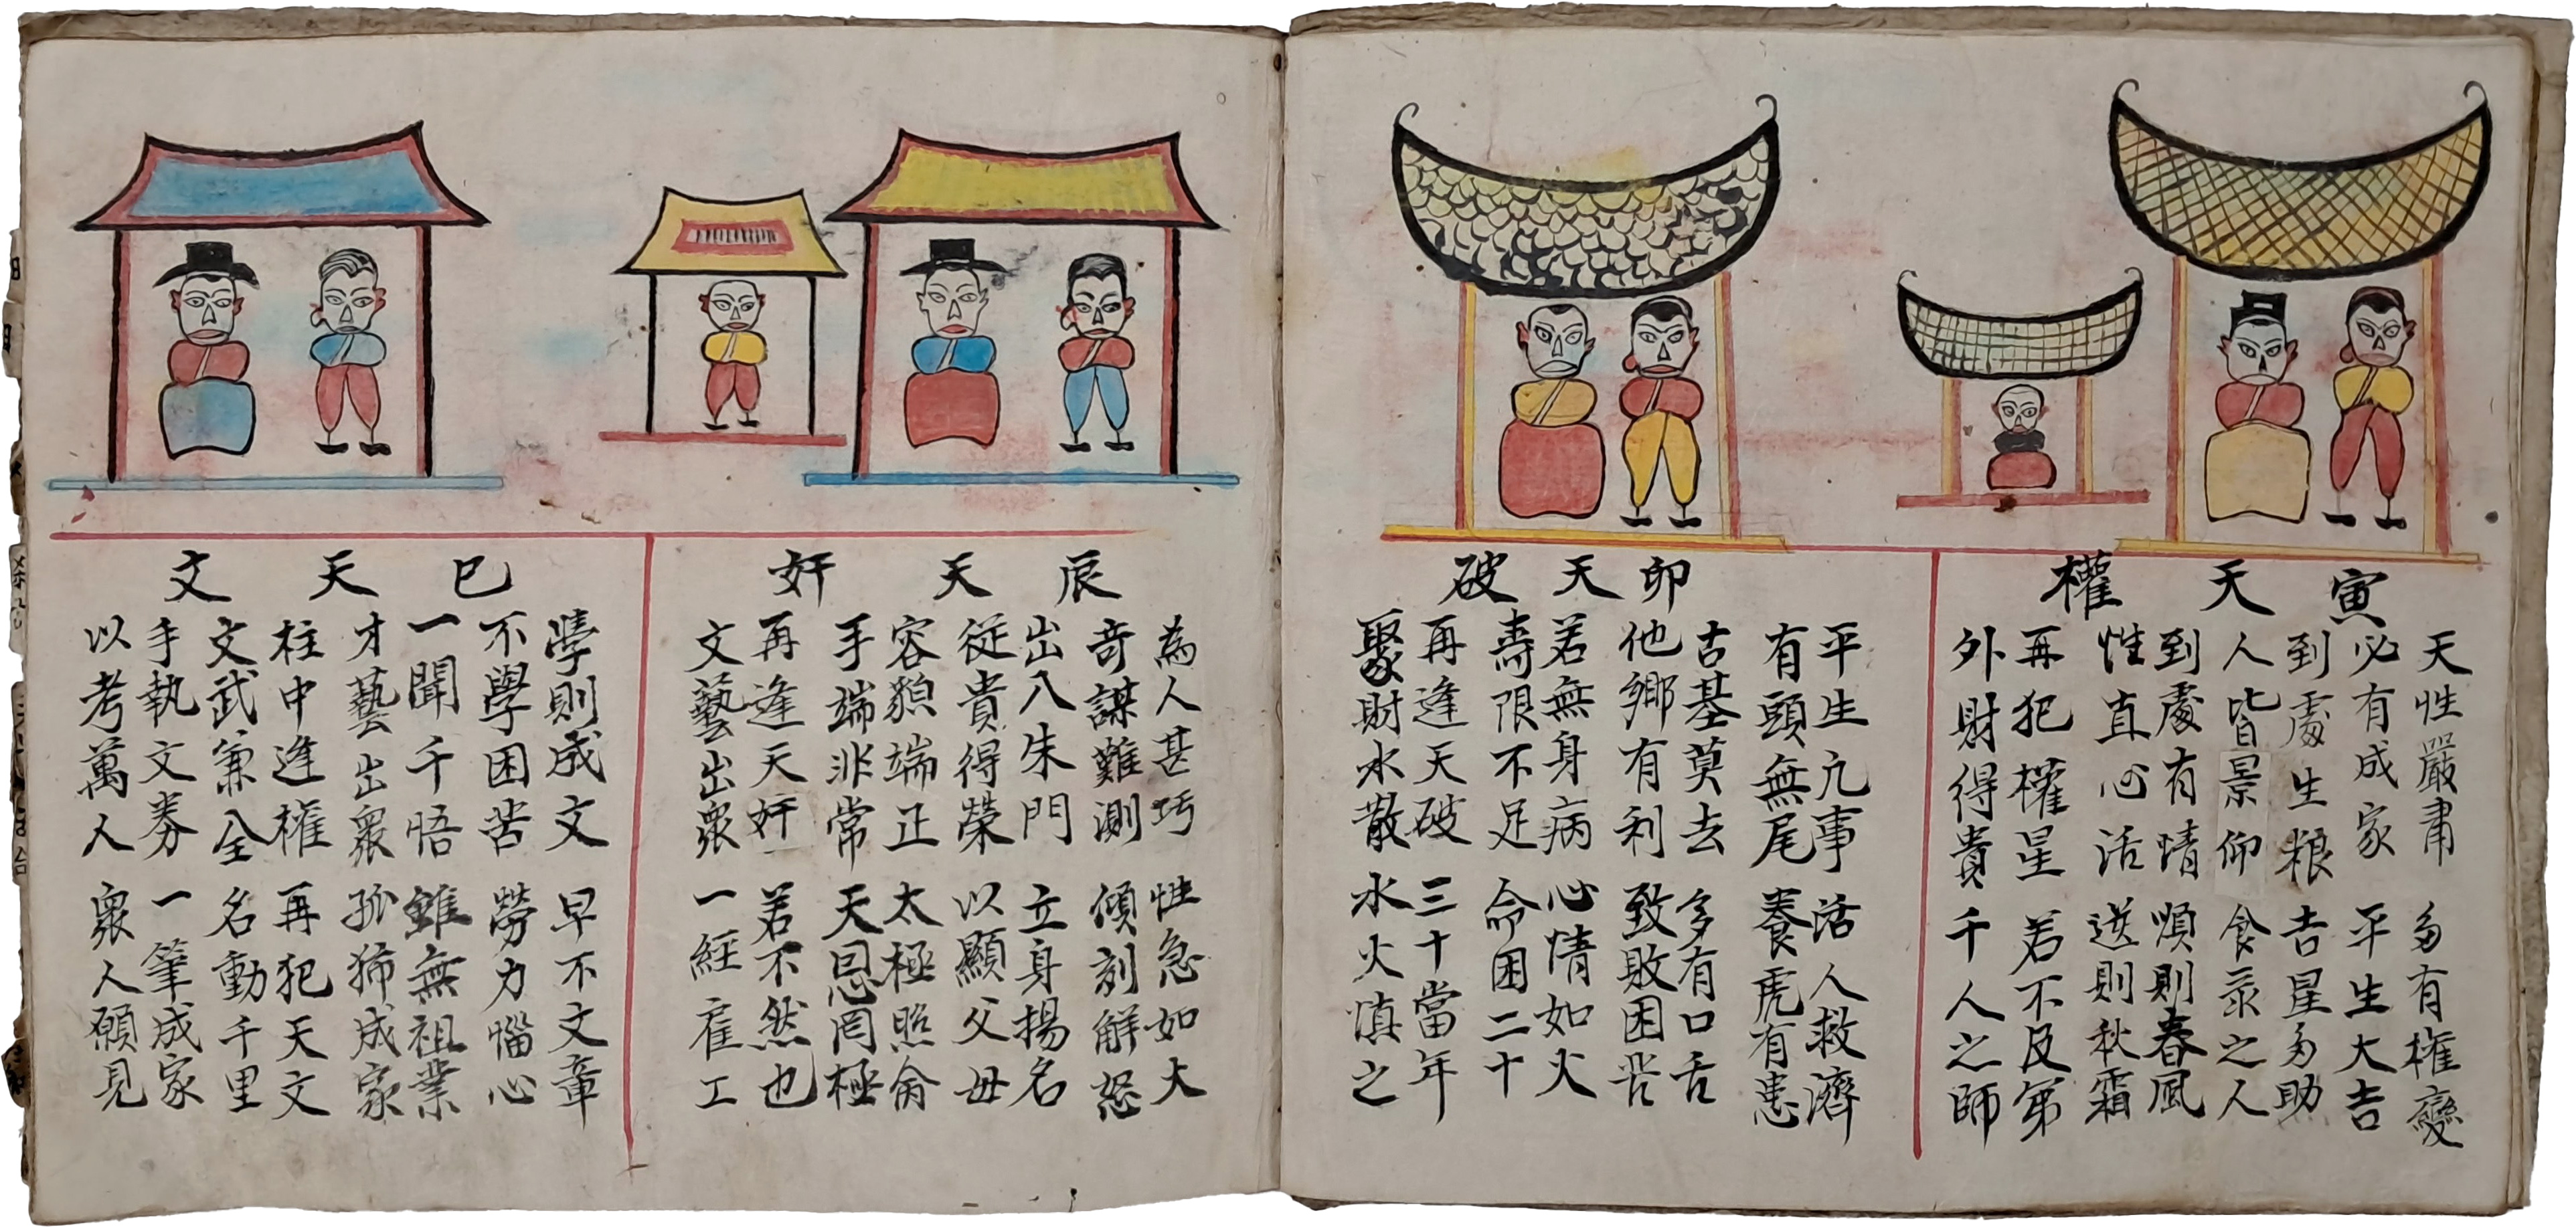 寅天權
天性嚴肅 多有權變
必有成家 平生大吉
到處生粮 吉星多助
人皆景仰 食彔之人
到處有情 順則春風
性直心活 逆則秋霜
再犯權星 若不及第
外財得貴 千人之師
卯天破
平生凢事 活人救濟
有頭無尾 養虎有患
古基莫去 多有口舌
他鄉有利 致敗困苦
若無身病 心情如火
壽限不足 命困二十
再逢天破 三十當年
聚財氷散 水火慎之
辰天奸
為人甚巧 性急如大
奇謀難測 傾刻解怒
出八朱門 立身揚名
從貴得榮 以顯父母
容貌端正 太極照命
手端非常 天恩罔極
再逢天奸 若不然也
文藝出衆 一經雇工
巳天文
學則成文 早不文章
不學困苦 勞力惱心
一聞千悟 雖無祖業
才藝出衆 孤獨成家
柱中逢權 再犯天文
文武兼全 名動千里
手執文券 一筆成家
以考萬人 衆人願見